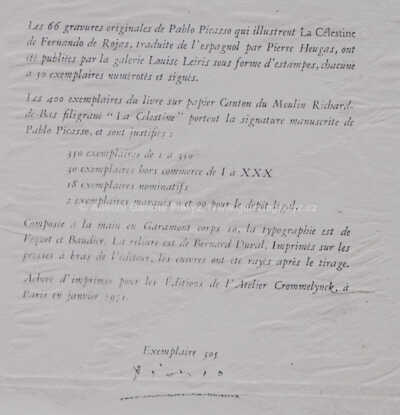 Les 66 gravures originales de Pablo Picasso qui illustrent La Célestine
de Fernando de Rojas, traduite de l'espagnol par Pierre Heugas, ont
été publiées par la galerie Louise Leiris sous forme d'estampes, chacune
à 50 exemplaires numérotés et signés.
Les 400 exemplaires du livre sur papier Canton du Moulin Richard
de-Bas filigrané "La Célestine" portent la signature manuscrite de
Pablo Picasso, et sont justifiés :
350 exemplaires de 1 à 350
30 exemplaires hors commerce de I à XXX
18 exemplaires nominatifs
2 exemplaires marqués 0 et 00 pour le dépôt légal.
Composée à la main en Garamont corps 16, la typographie est de
Fequet et Baudier. La reliure est de Bernard Duval. Imprimés sur les
presses à bras de l'éditeur, les cuivres ont été rayés après le tirage.
Achevé d'imprimer pour les Éditions de l'Atelier Crommelynck, à
Paris en janvier 1971.
Exemplaire 305
Picasso